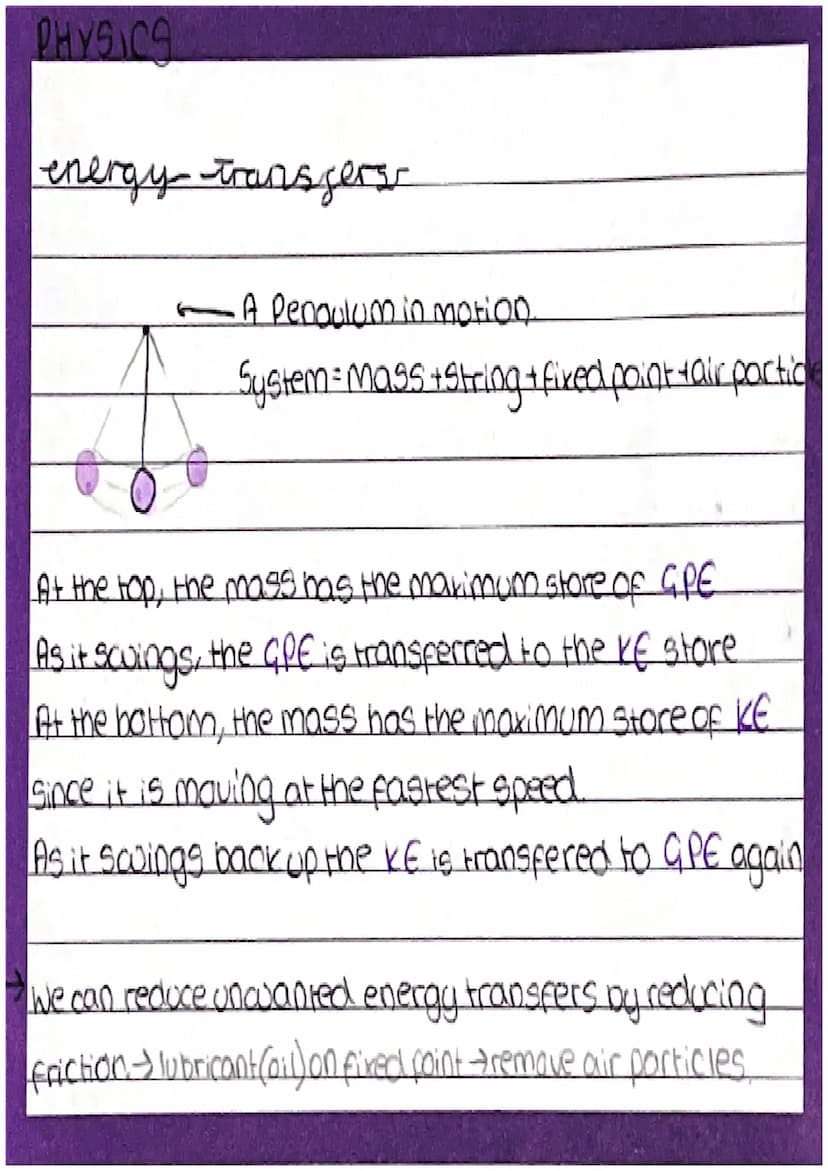 PHYSICS
energy transfers
← A Pendulum in motion.
System = mass + string + fixed point + air particle
At the top, the mass has the maximum store of GPE
As it swings, the GPE is transferred to the KE store
At the bottom, the mass has the maximum store of KE
since it is moving at the fastest speed.
As it swings back up the KE is transfered to GPE again
→ We can reduce unwanted energy transfers by reducing
friction. → lubricant (oil) on fixed point → remove air particles.